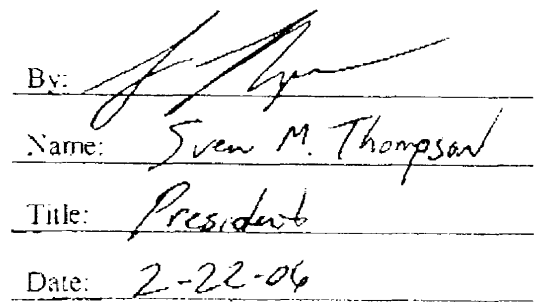 By:
Name: Sven M. Thompson
Title: President
Date: 2-22-06